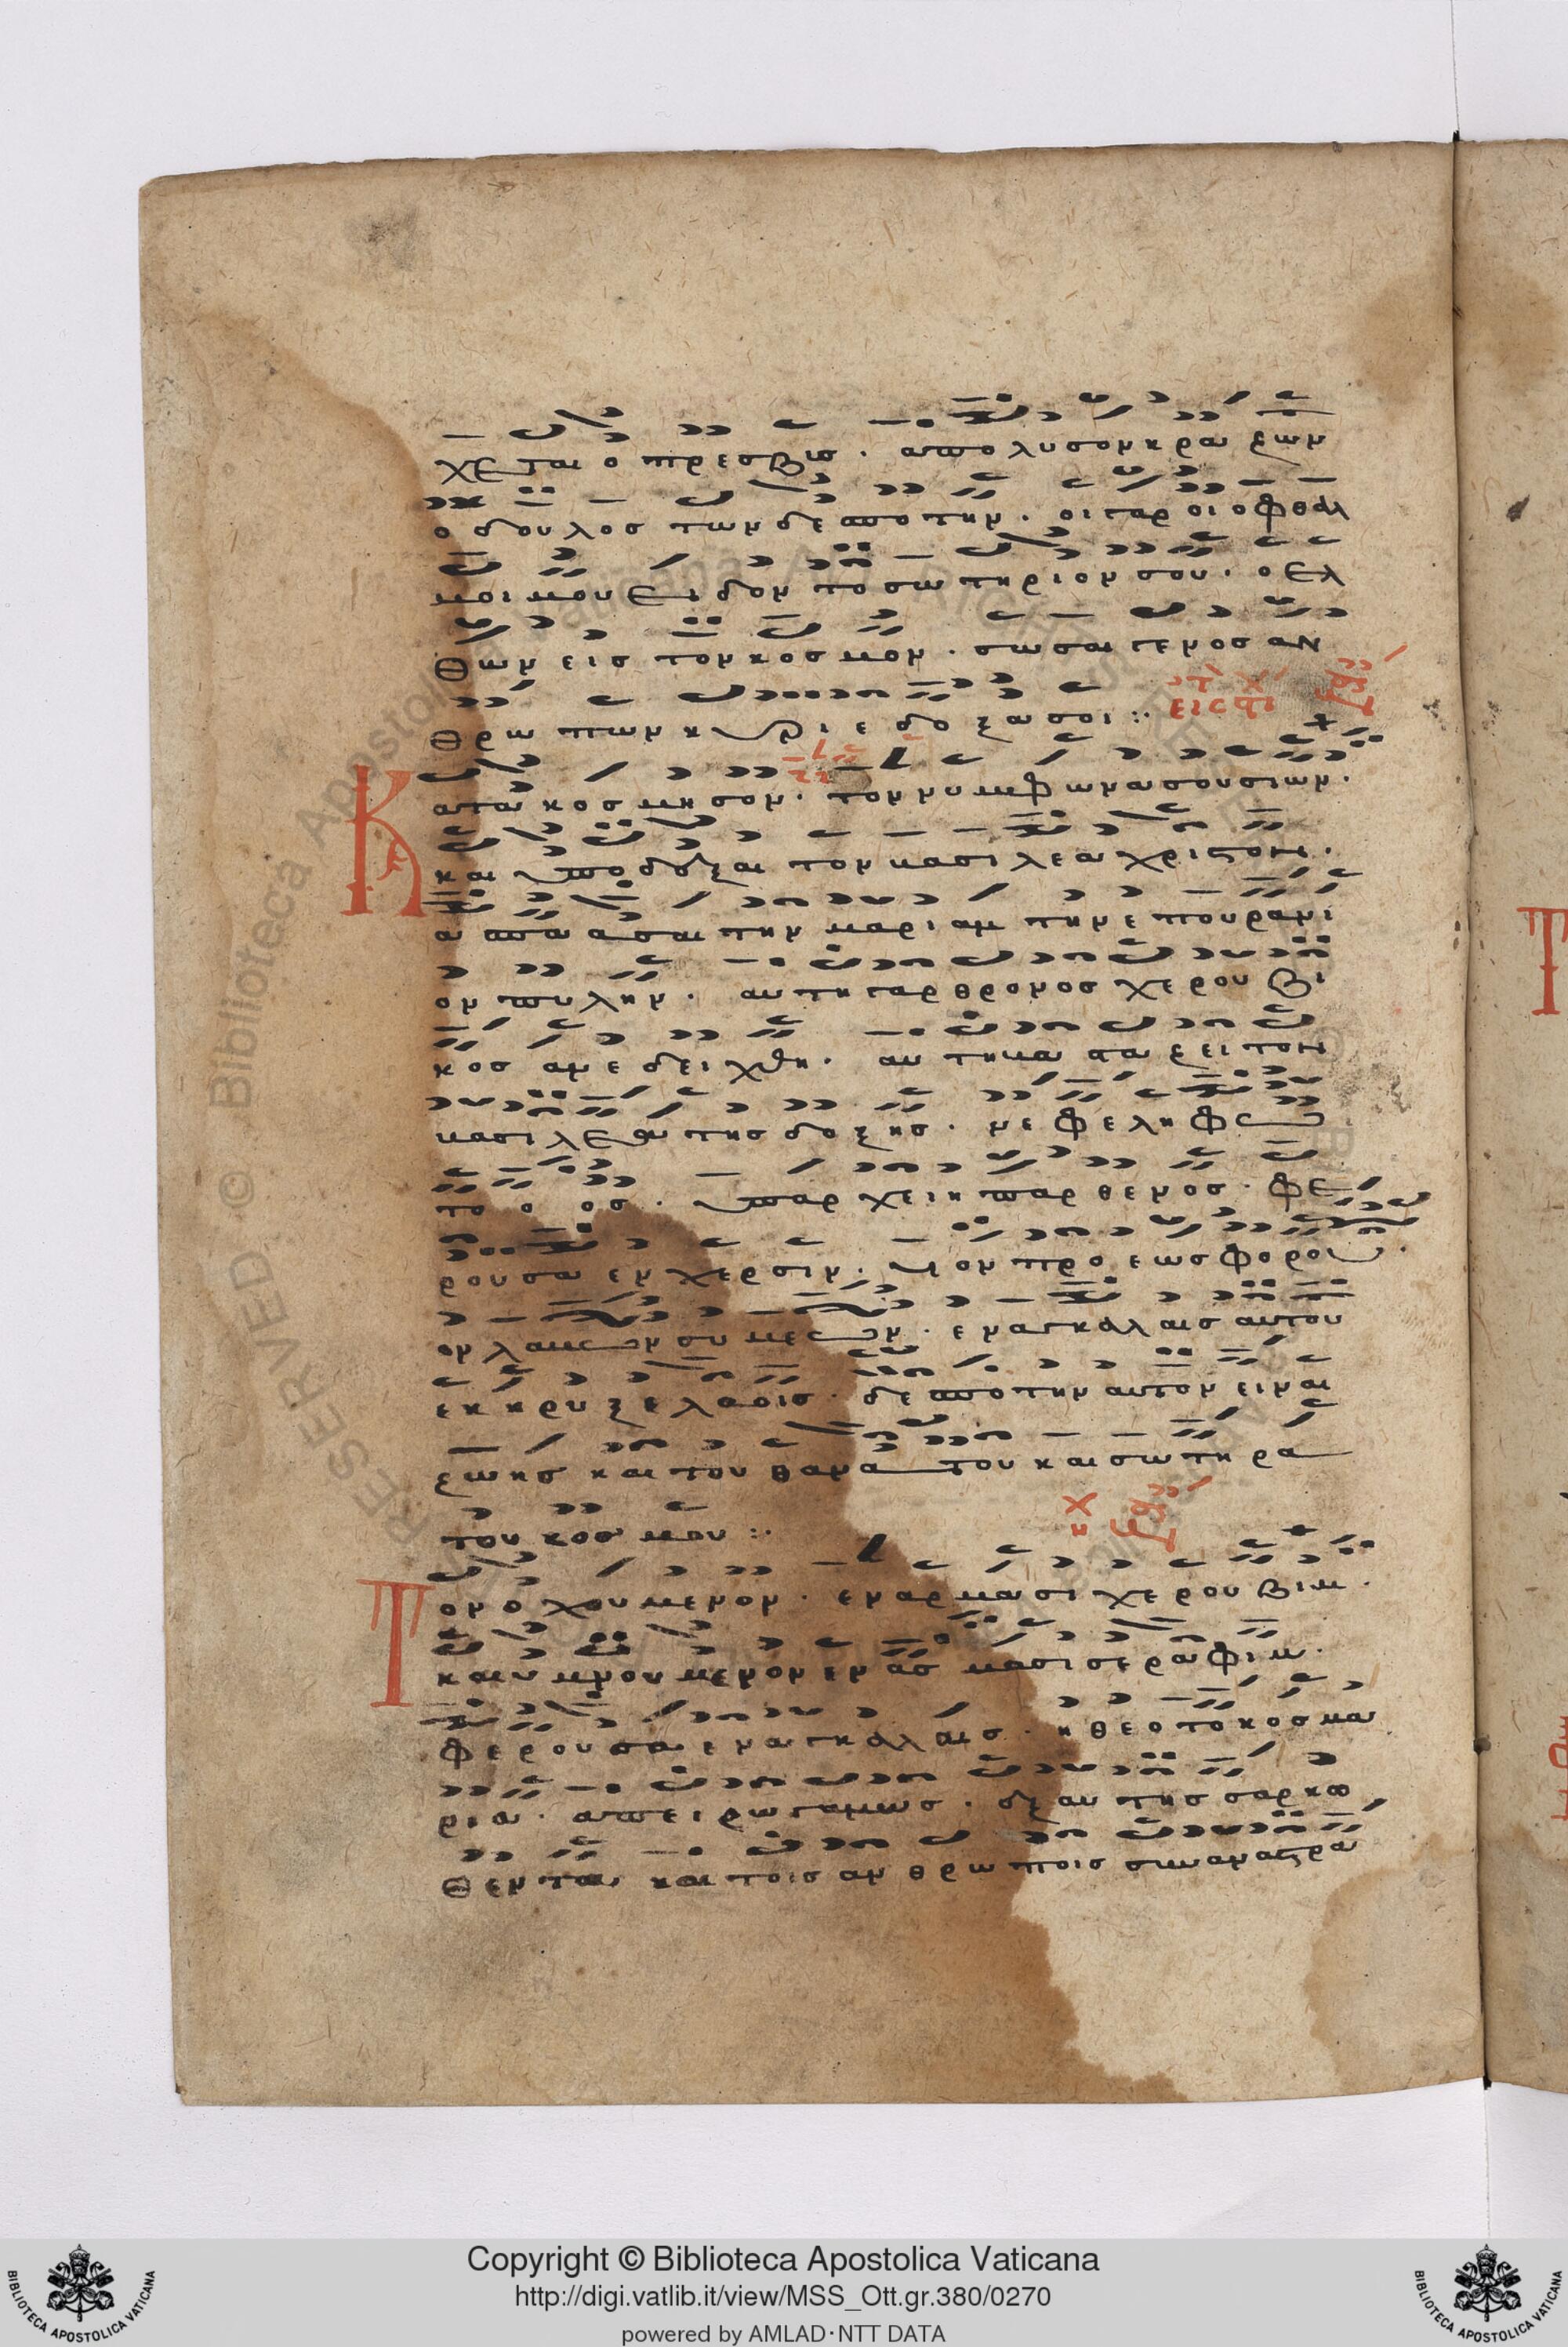 χεται ο πρεσβισ · απολυσον κραυ ζων
ο δουλοσ των δεσποτην · οι γαρ οι οφθαλ
μοι μου ειδον το σωτηριον σου · ο ελ
θων εισ τον κοσμον · σωσαι γενοσ αν
θρωπων κυριε δοξα σοι :·
Κατακοσμησον · τον νυμφωνα σου σιων ·
και υποδεξαι τον βασιλεα χριστον ·
α ασπα ασαι την μαριαμ την επουρανι
ον πυλην · αυτη γαρ θρονοσ χερουβι
κοσ ανεδειχθη · αυτη βασταζει τον
βασιλεα τησ δοξησ · νεφελη φω
το ο οσ · υπαρχει η παρθενοσ · φε
ρουσα εν χερσιν · υιον προ εωσφορου ·
ον λαβων συμεων · εν αγκαλαισ αυτου
εκηρυξε λαοισ · δεσποτην αυτον ειναι
ζωησ και του θανατου και σωτηρα
του κοσμου :·
Τον οχουμενον · εν αρμασι χερουβιμ ·
και υμνουμενον εν ασμασι σεραφιμ ·
φερουσα εν αγκαλαισ · η θεοτοκοσ μα
ρια · απειρωγαμωσ · εξ αυτησ σαρκω
θεντα και τοισ ανθρωποισ συναναστρα
Copyright © Biblioteca Apostolica Vaticana
http://digi.vatlib.it/view/MSS_Ott.gr.380/0270
powered by AMLAD·NTT DATA
BIBLIOTECA APOSTOLICA VATICANA
BIBLIOTECA APOSTOLICA VATICANA